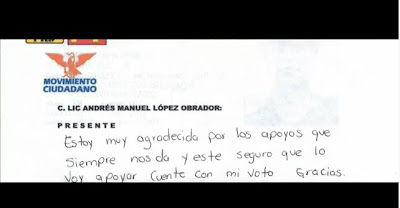 MOVIMIENTO
CIUDADANO
C. LIC ANDRÉS MANUEL LÓPEZ OBRADOR:
PRESENTE
Estoy muy agradecida por los apoyos que
siempre nos da y este seguro que lo
voy apoyar cuente con mi voto Gracias.